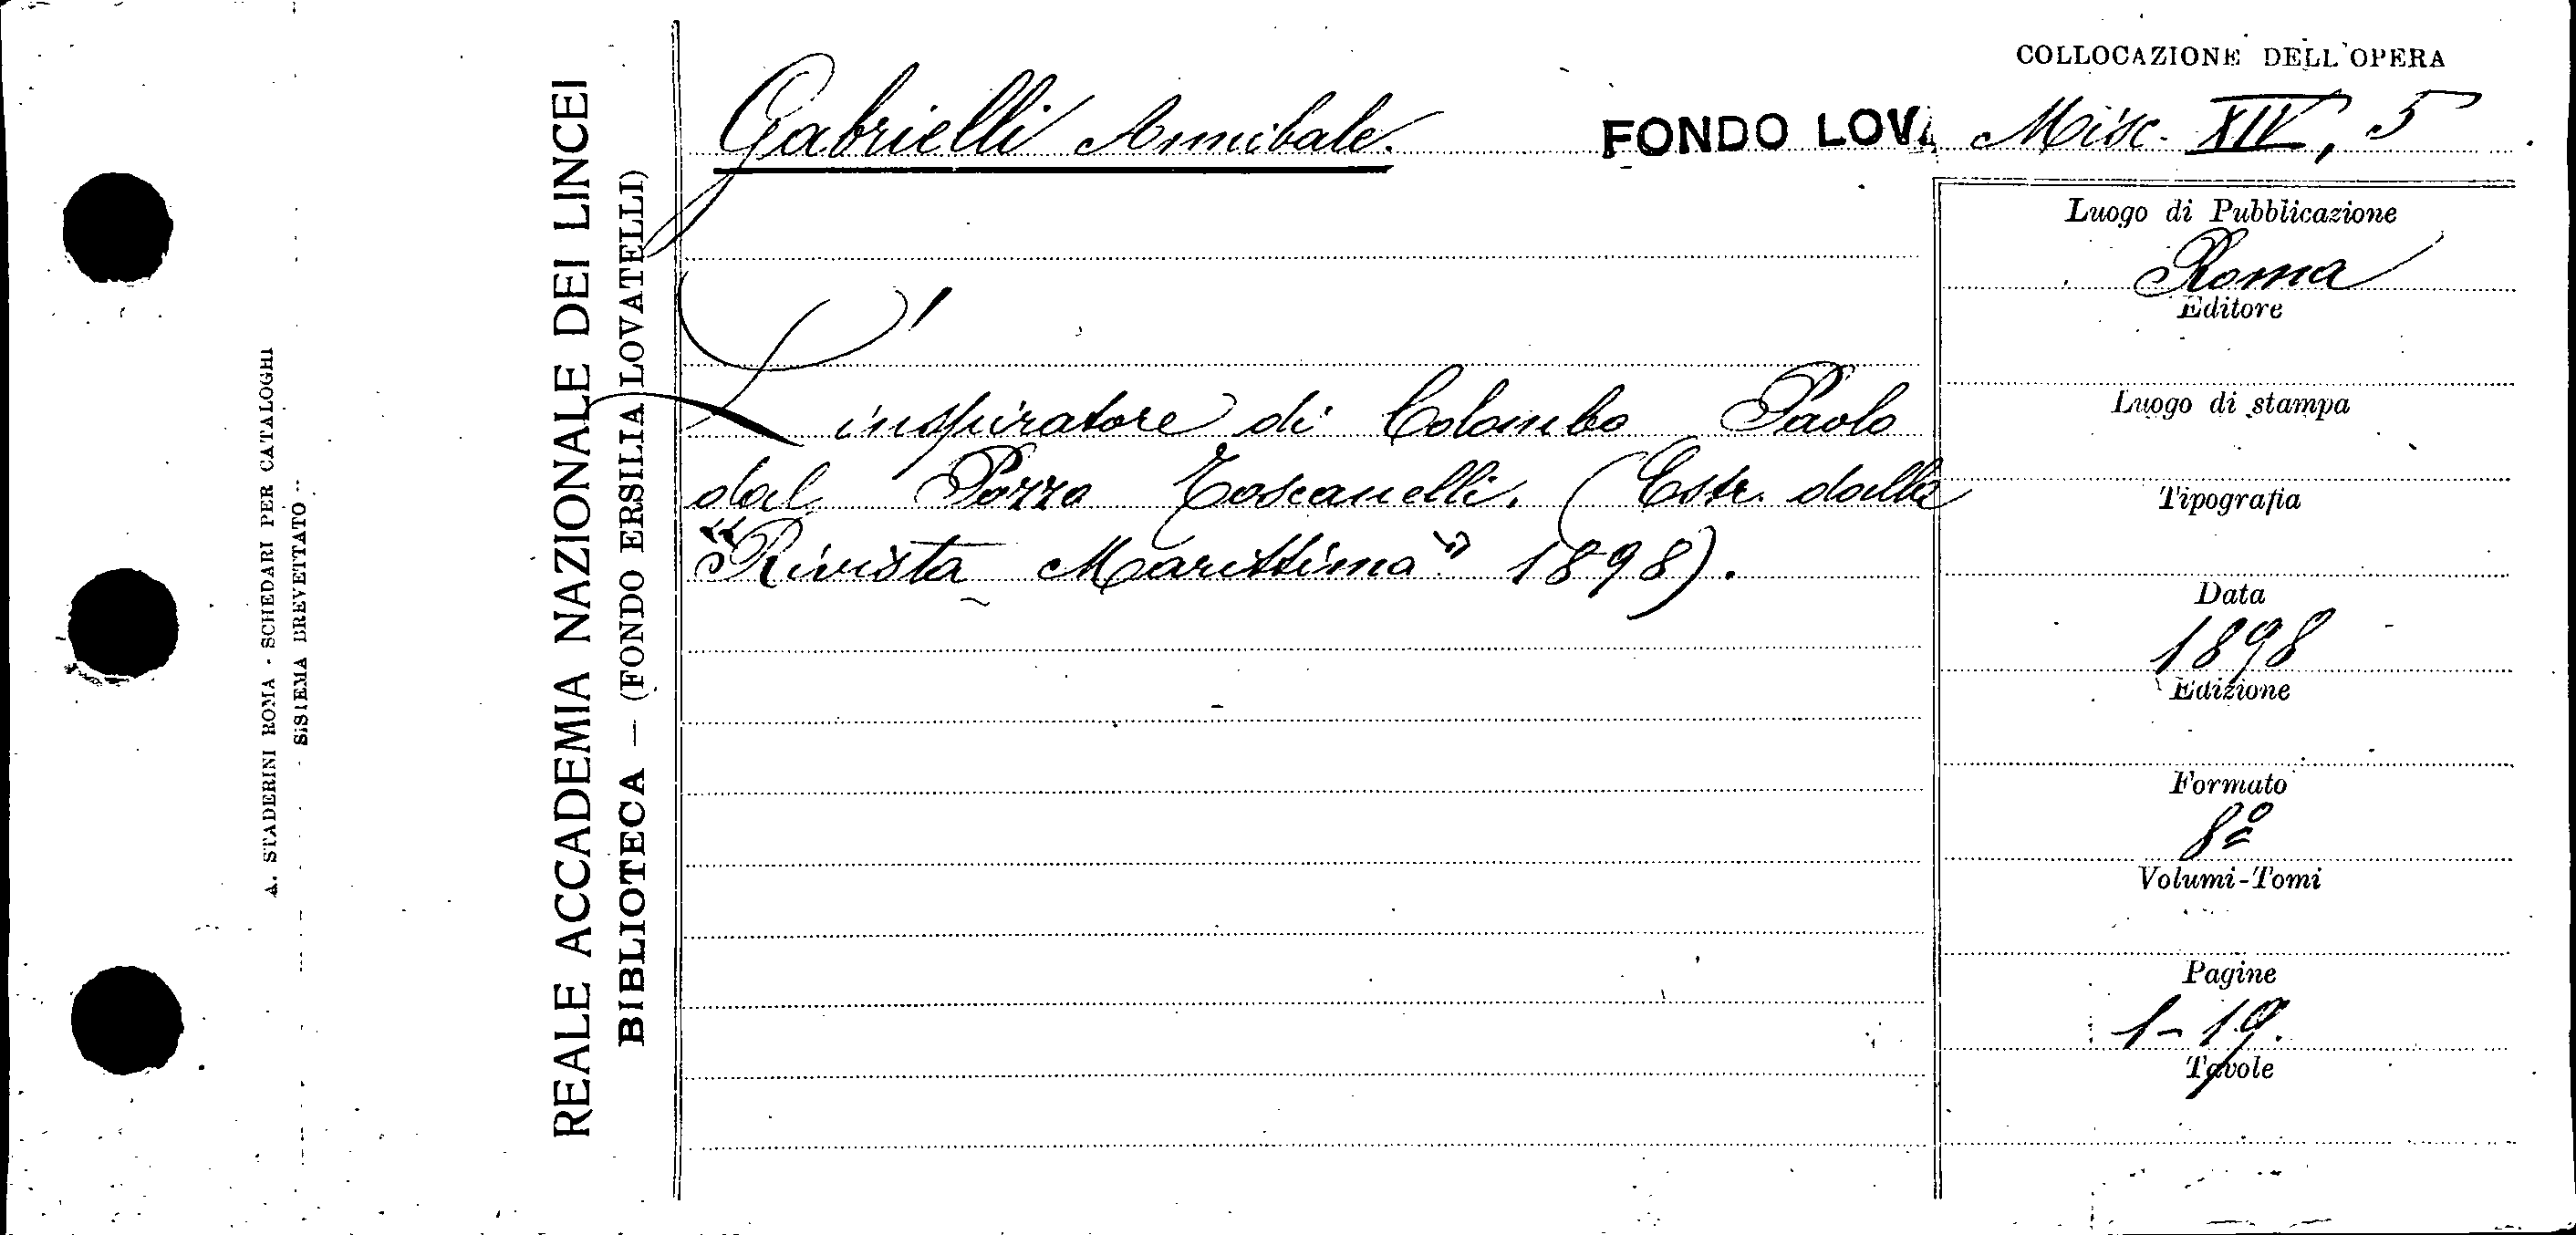 A. STADERINI ROMA - SCHEDARI PER CATALOGHI
SISTEMA BREVETTATO
REALE ACCADEMIA NAZIONALE DEI LINCEI
BIBLIOTECA — (FONDO ERSILIA LOVATELLI)
Gabrielli Annibale.
FONDO LOVA
L'inspiratore di Colombo Paolo
dal Pozzo Toscanelli. (Estr. dalla
"Rivista Marittima" 1898).
COLLOCAZIONE DELL'OPERA
Misc. XIV, 5
Luogo di Pubblicazione
Roma
Editore
Luogo di stampa
Tipografia
Data
1898
Edizione
Formato
8º
Volumi-Tomi
Pagine
1-19.
Tavole